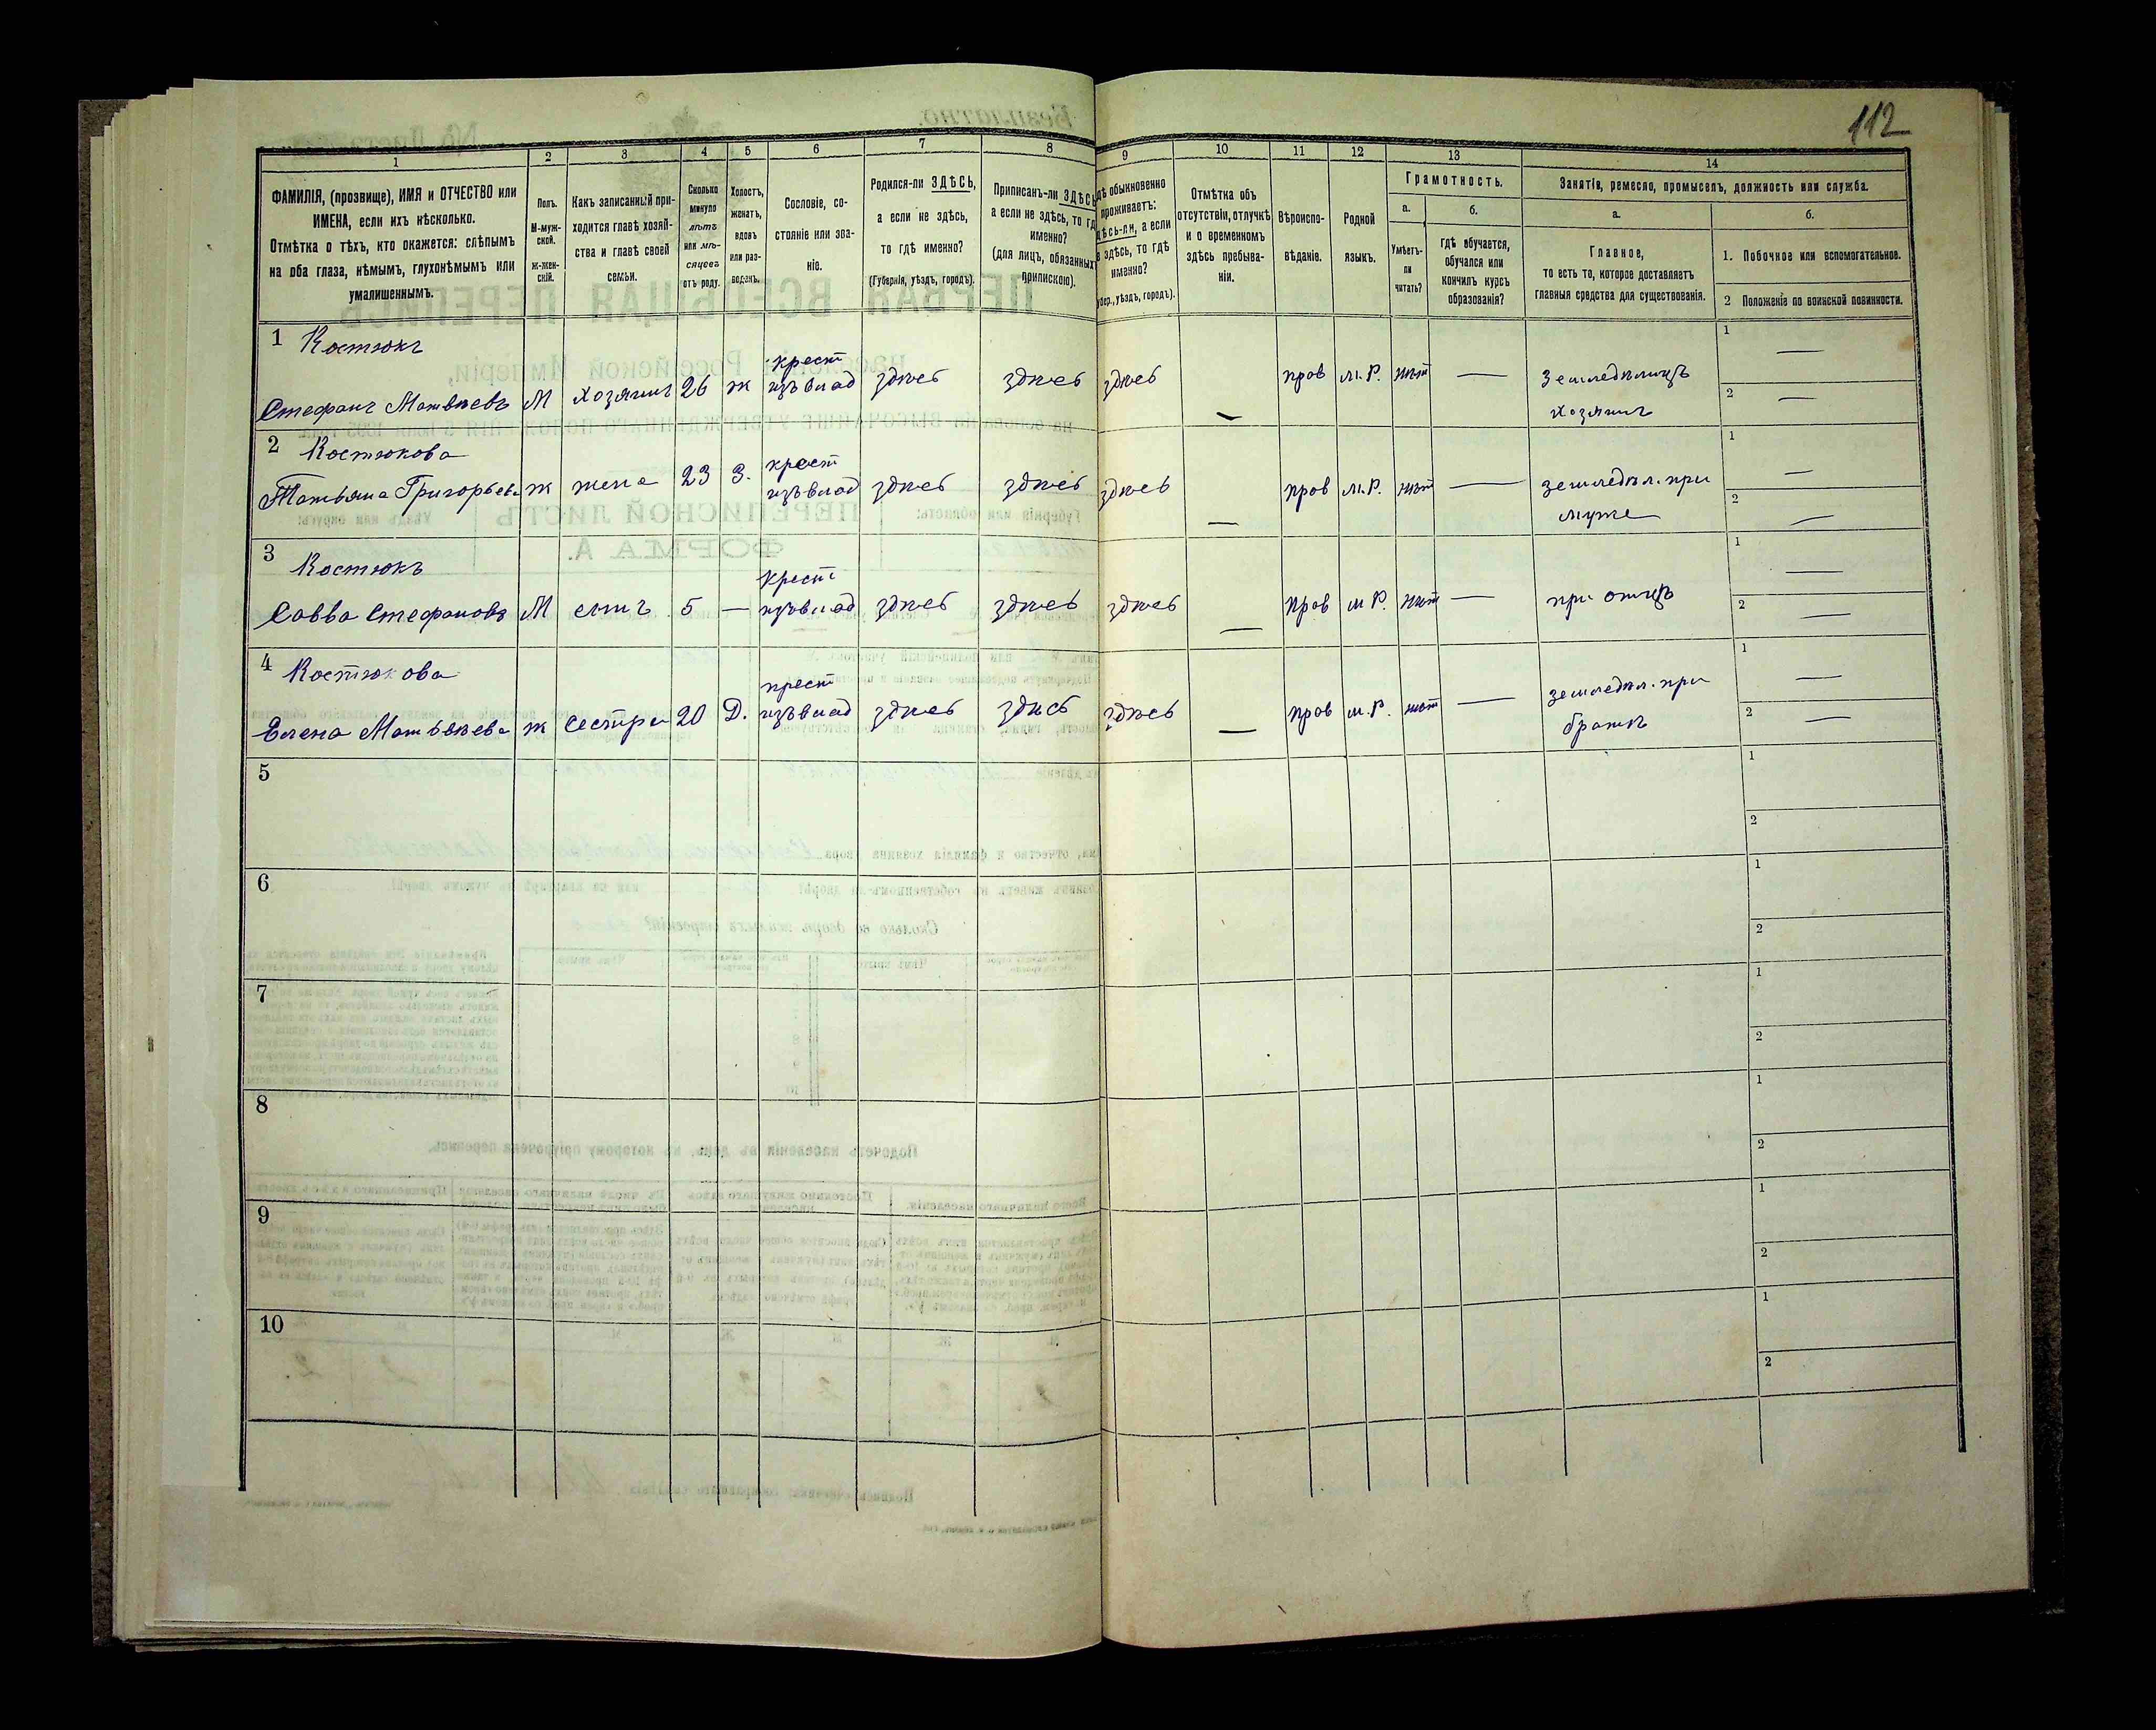 112
1
2
3
4
5
6
7
8
9
10
11
12
13
14
ФАМИЛІЯ, (прозвище), ИМЯ и ОТЧЕСТВО или
ИМЕНА, если ихъ нѣсколько.
Отмѣтка о тѣхъ, кто окажется: слѣпымъ
на оба глаза, нѣмымъ, глухонѣмымъ или
умалишеннымъ.
Полъ.
М-муж-
ской.
ж-жен-
скій.
Какъ записанный при-
ходится главѣ хозяй-
ства и главѣ своей
семьи.
Сколько
минуло
лѣтъ
или мѣ-
сяцевъ
отъ роду.
Холостъ,
женатъ,
вдовъ
или раз-
веденъ.
Сословіе, со-
стояніе или зва-
ніе.
Родился-ли ЗДѢСЬ,
а если не здѣсь,
то гдѣ именно?
(Губернія, уѣздъ, городъ).
Приписанъ-ли ЗДѢСЬ
а если не здѣсь, то гд
именно?
(для лицъ, обязанныхъ
припискою).
дѣ обыкновенно
проживаетъ:
дѣсь-ли, а если
е здѣсь, то гдѣ
именно?
убер., уѣздъ, городъ).
Отмѣтка объ
отсутствіи, отлучкѣ
и о временномъ
здѣсь пребыва-
ніи.
Вѣроиспо-
вѣданіе.
Родной
языкъ.
Грамотность.
а.
Умѣетъ-
ли
читать?
б.
Гдѣ обучается,
обучался или
кончилъ курсъ
образованія?
Занятіе, ремесло, промыселъ, должность или служба.
а.
Главное,
то есть то, которое доставляетъ
главныя средства для существованія.
б.
1. Побочное или вспомогательное.
2 Положеніе по воинской повинности.
1 Костюкъ
Стефанъ Матвѣевъ М хозяинъ 26 ж крест
изъ влад здѣсь здѣсь здѣсь — пров м.р. нѣтъ — Земледѣлецъ
хозяинъ
1 —
2 —
2 Костюкова
Татьяна Григорьева ж жена 23 З. крест
изъ влад здѣсь здѣсь здѣсь — пров м.р. нѣтъ — земледѣл. при
муже
1 —
2 —
3 Костюкъ
Савва Стефановъ М сынъ 5 — крест
изъ влад здѣсь здѣсь здѣсь — пров м.р. нѣтъ — при отцѣ
1 —
2 —
4 Костюкова
Елена Матвѣева ж сестра 20 Д. крест
изъ влад здѣсь здѣсь здѣсь — пров м.р. нѣтъ — земледѣл. при
братѣ
1 —
2 —
5
1
2
6
1
2
7
1
2
8
1
2
9
1
2
10
1
2